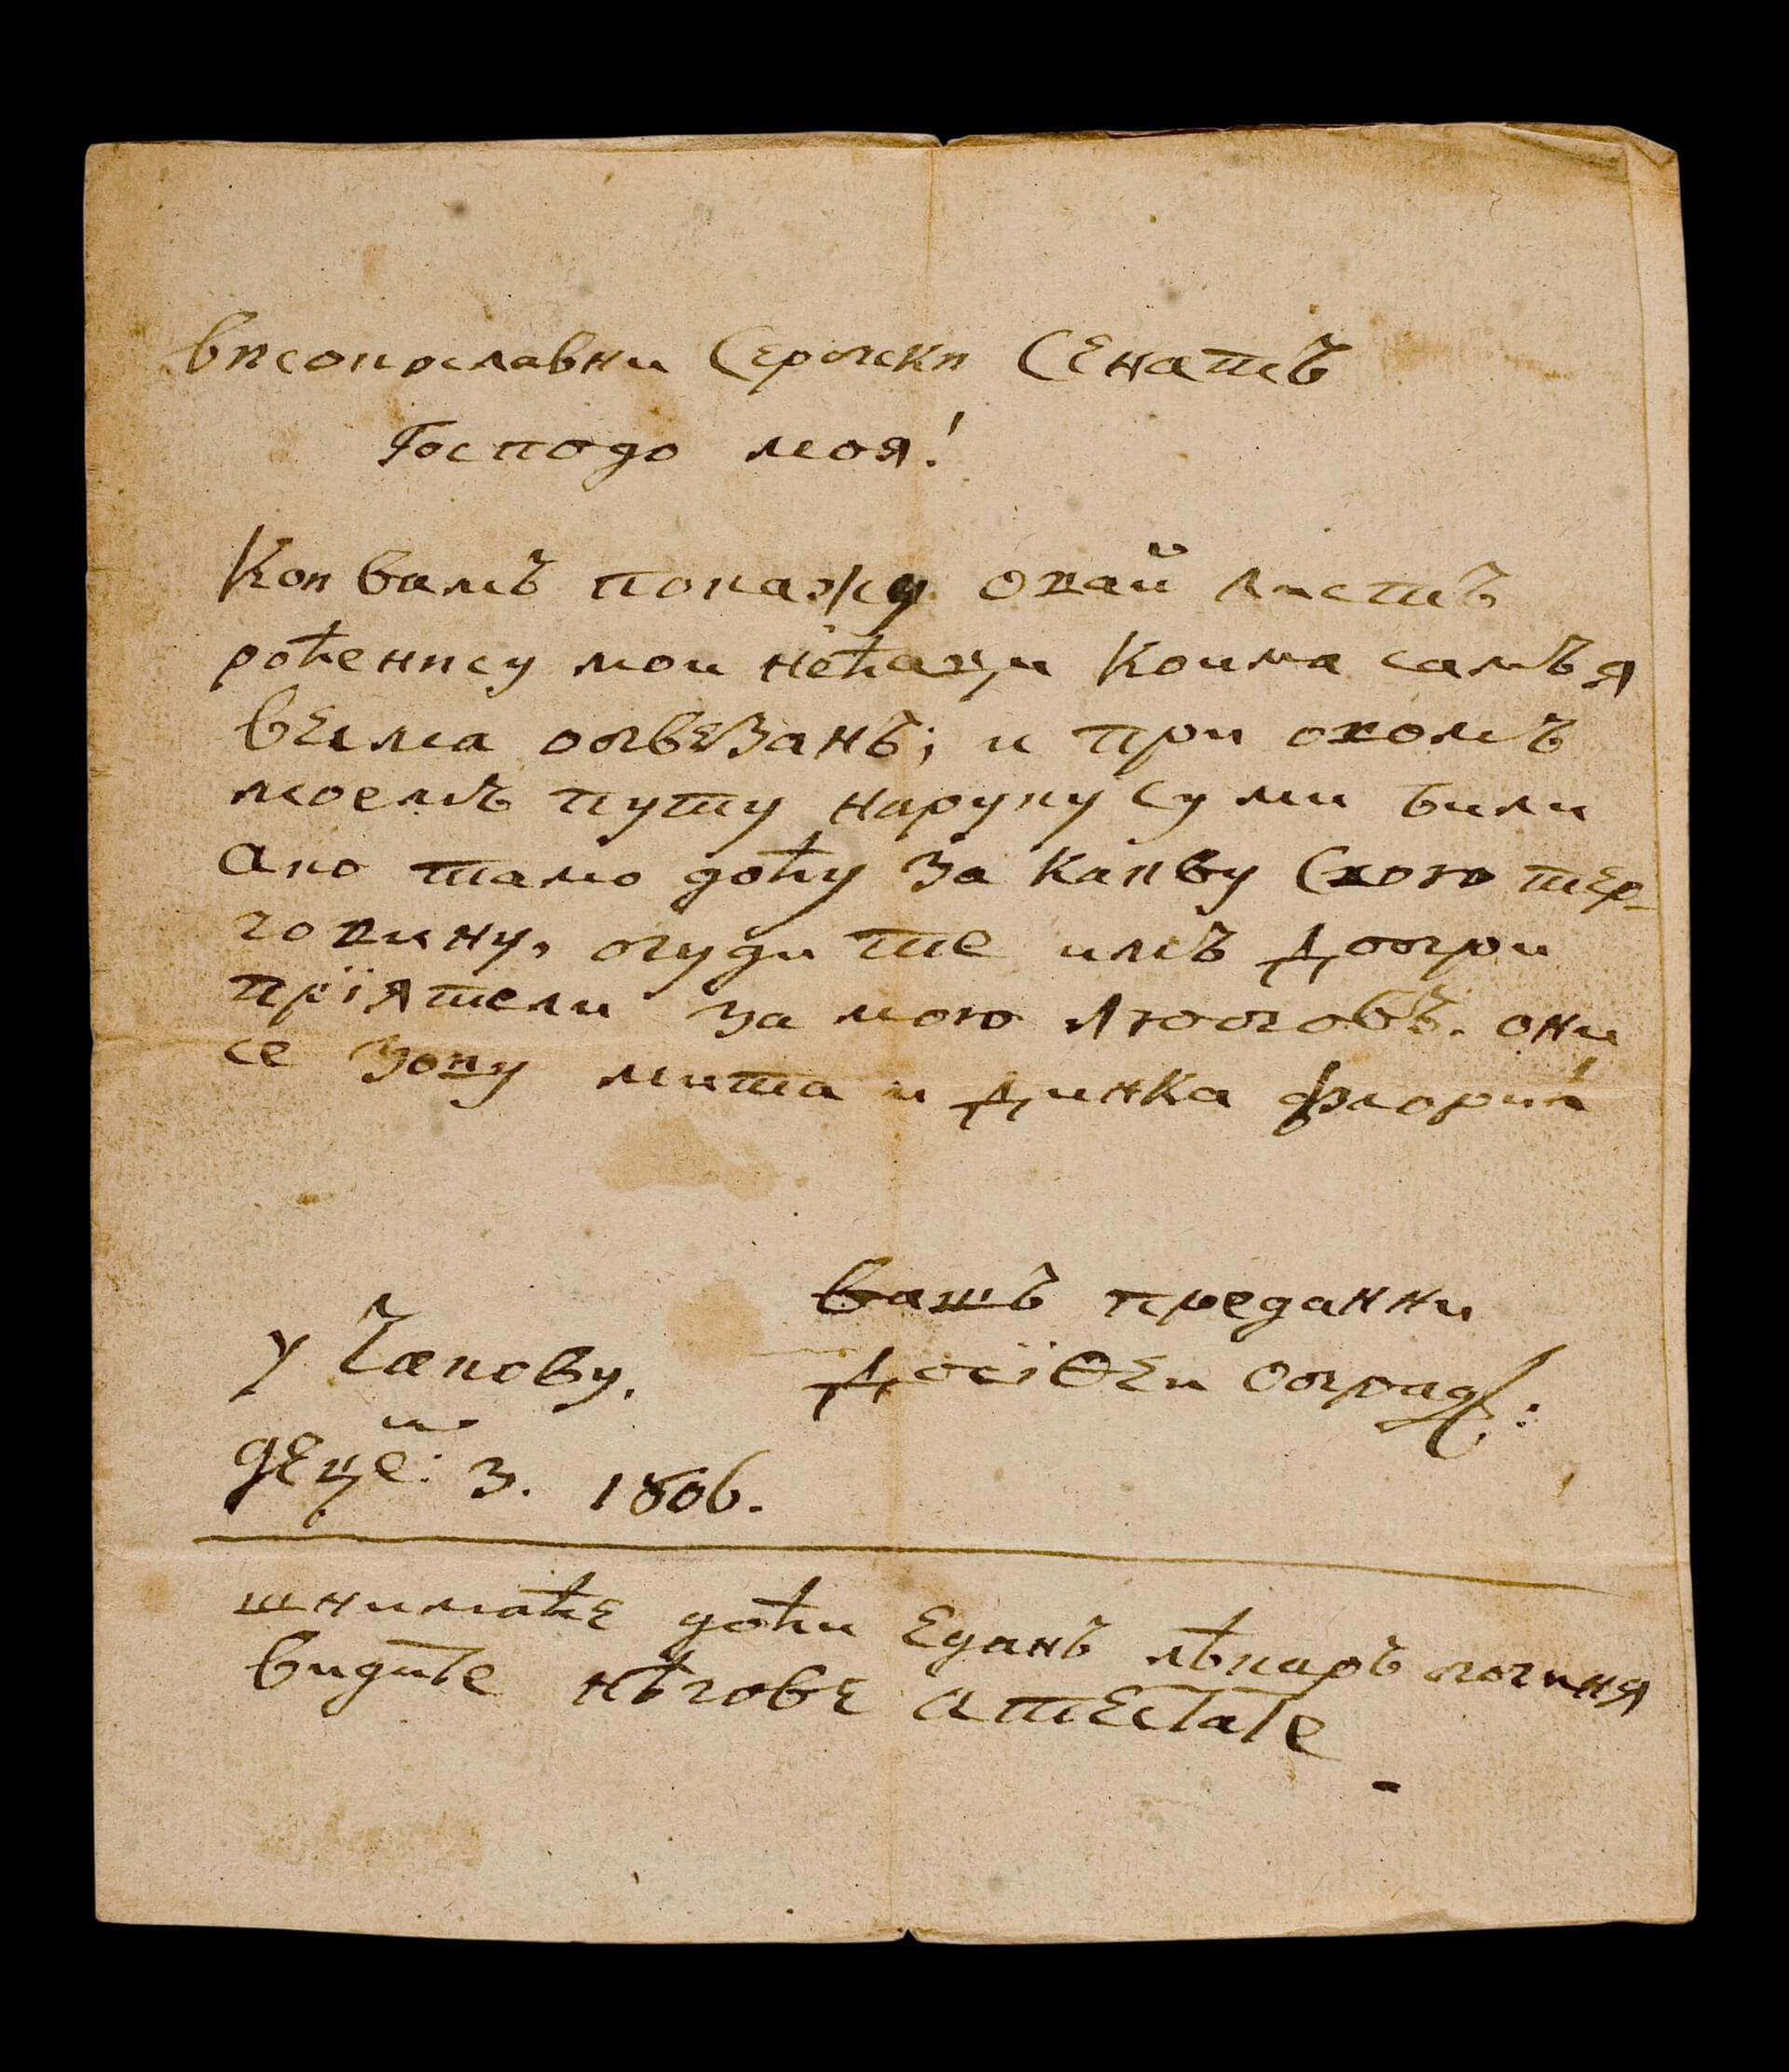 Високославни Сербски Сенатъ
Господо моя!
Кои Вамъ покажу овай листъ
рођени су мои нећаци коима самъ я
Велма обвезанъ; и при овомъ
моемъ путу наруку су ми били
Ако тамо дођу за какву Свою тер-
говину, буди те имъ добри
пріятели за мою любовъ. они
се зову мита и динка
вашъ преданни
Досіѳеи Обрад:
У Чакову.
деце: 3. 1806.
шњима ће доћи еданъ лѣкаръ
видите нѣгове атестате